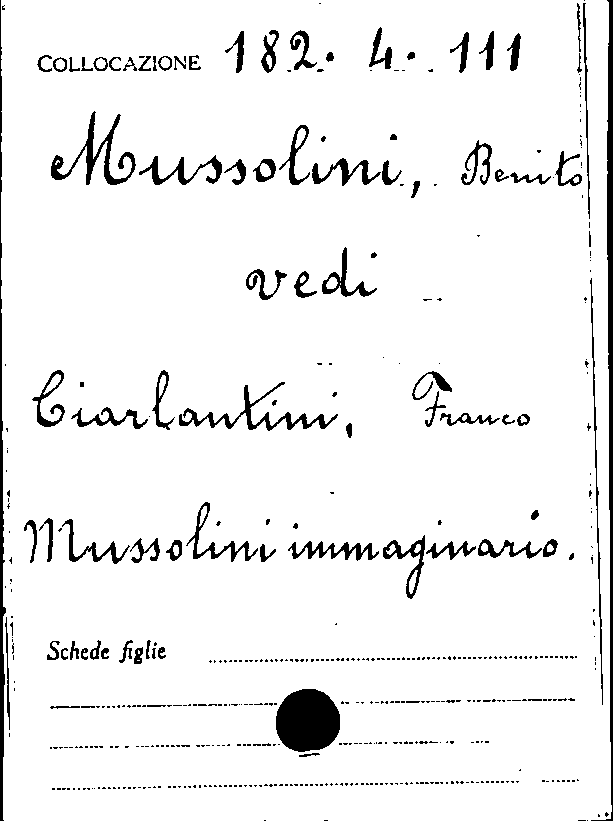 COLLOCAZIONE 182. 4. 111
Mussolini, Benito
vedi
Ciarlantini, Franco
Mussolini immaginario.
Schede figlie